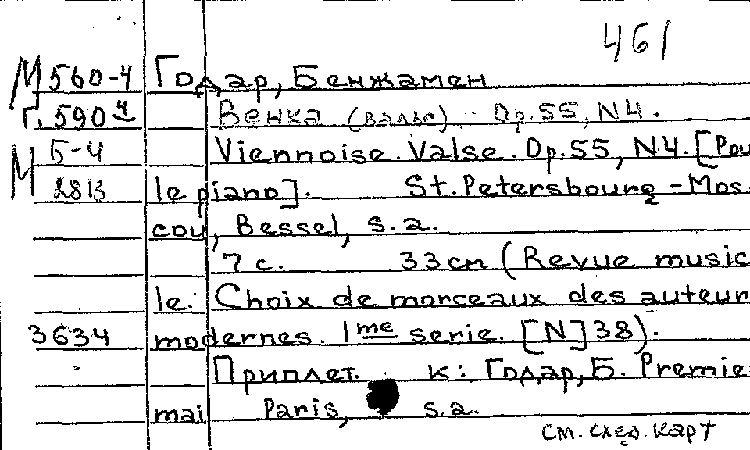 461
М 560-4 Годар, Бенжамен
Г. 590 4 Венка (вальс) Op.55, N4.
М 5-4 Viennoise. Valse. Op.55, N4. [Pou
2813 le piano]. St. Petersbourg - Mos
cou, Bessel, s.a.
7 с. 33см (Revue music
le. Choix de morceaux des auteur
3634 modernes. 1me serie. [N] 38).
Приплет. к: Годар, Б. Premie
mai Paris, s.a.
см. след. карт